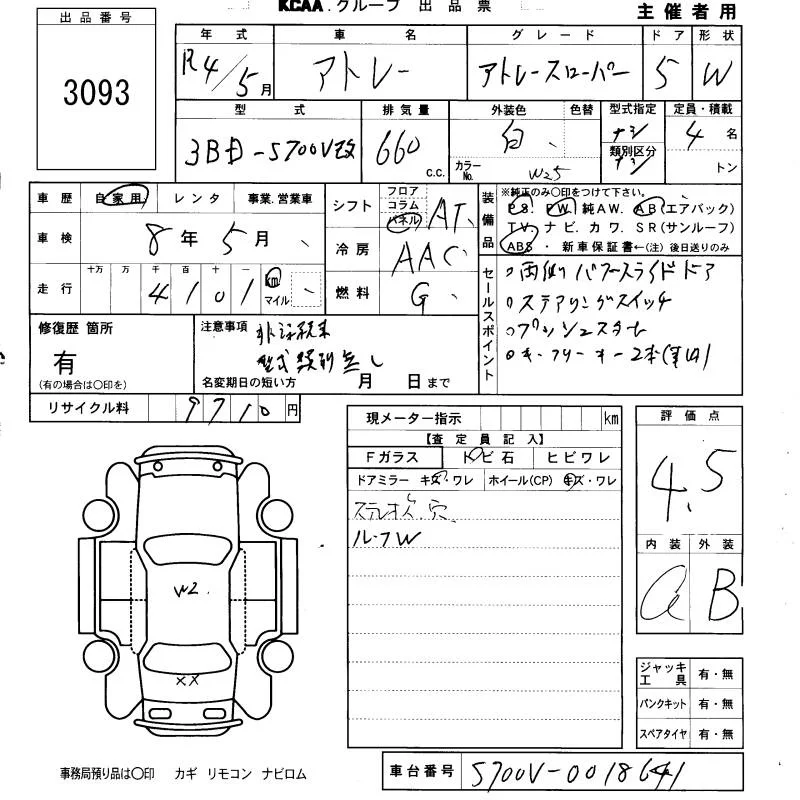 KCAA.グループ 出品票
主催者用
出品番号
3093
年式 車名 グレード ドア 形状
R4/5月 アトレー アトレースローパー 5 W
型式 排気量 外装色 色替 型式指定 定員・積載
3BD-S700V改 660 c.c. 白、 ナシ 4名
カラーNo. W25 類別区分 ナシ トン
車歴 自家用 レンタ 事業.営業車
シフト フロア コラム パネル AT、
装備品
※純正のみ〇印をつけて下さい。
PS. PW. 純AW. AB(エアバック)
TV. ナビ. カワ. SR(サンルーフ)
ABS・ 新車保証書←(注) 後日送りのみ
車検 8年5月、
冷房 AAC
走行 十万 万 千 百 十 一
4 1 0 1 km マイル 、
燃料 G、
セールスポイント
○両側パワースライドドア
○ステアリングスイッチ
○プッシュスタート
○キーフリーキー2本
修復歴 箇所
有
(有の場合は〇印を)
注意事項
型式類別無し
名変期日の短い方 月 日まで
リサイクル料 9710円
現メーター指示 km
【査定員記入】
Fガラス トビ石 ヒビワレ
ドアミラー キズ・ワレ ホイール(CP) キズ・ワレ
穴
ルーフW
評価点
4.5
内装 外装
a B
W2.
XX
ジャッキ工具 有・無
パンクキット 有・無
スペアタイヤ 有・無
事務局預り品は〇印 カギ リモコン ナビロム
車台番号 S700V-0018641